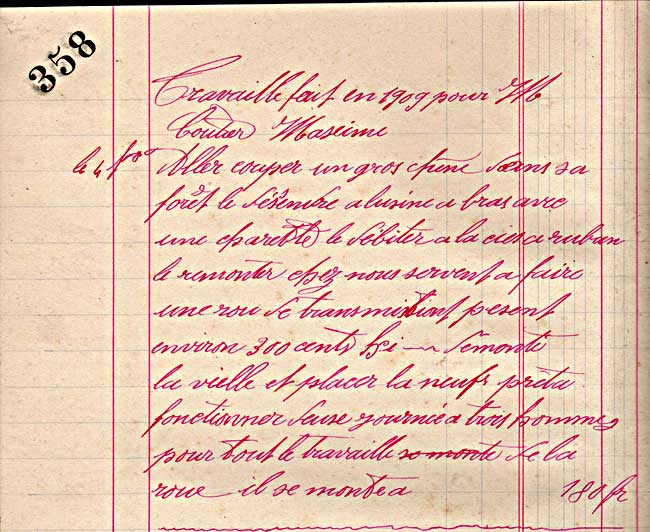 358
Travaille fait en 1909 pour M
Coutier Maxime
le 4 Aller couper un gros chene dans sa
forêt le désendre a lusine a bras avec
une charette le débiter a la cies a ruban
le remonter chez nous servent a faire
une rou de transmitiont pesent
environ 300 cents démonté
la vielle et placer la neufr prèta
fonctionner deuse journée a trois hommes
pour tout le travaille se monte de la
roue il se monte a 180 fr